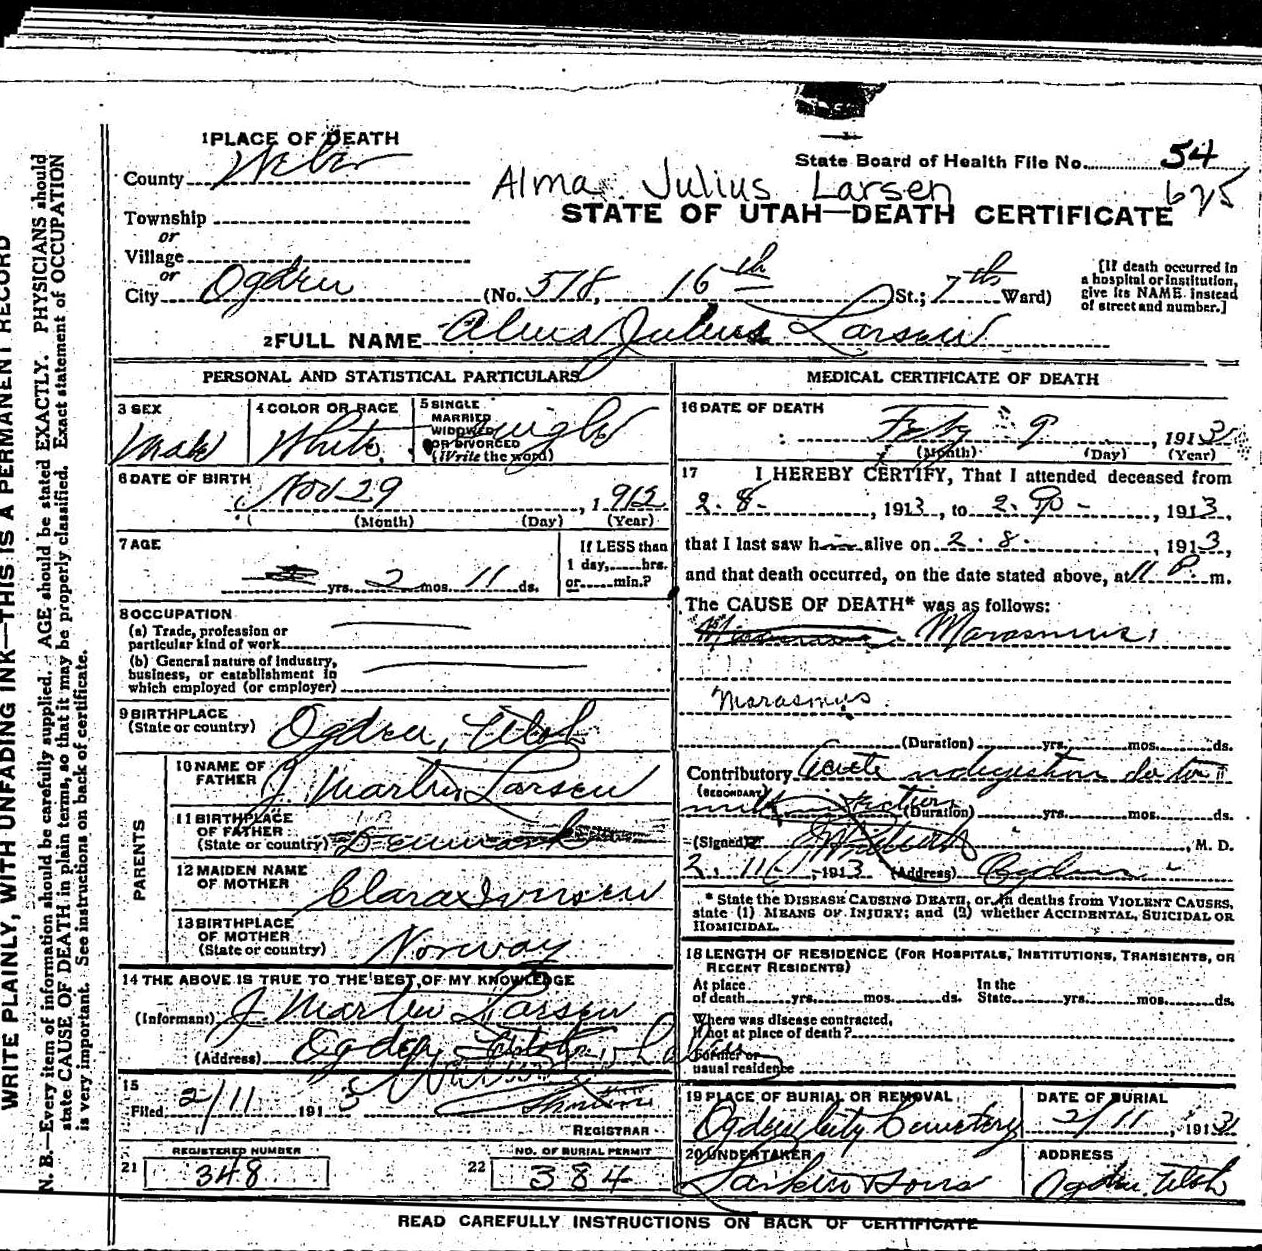 WRITE PLAINLY, WITH UNFADING INK—THIS IS A PERMANENT RECORD
N. B.—Every item of information should be carefully supplied. AGE should be stated EXACTLY. PHYSICIANS should
state CAUSE OF DEATH in plain terms, so that it may be properly classified. Exact statement of OCCUPATION
is very important. See instructions on back of certificate.
1 PLACE OF DEATH
State Board of Health File No. 54
County Weber
Alma Julius Larsen
675
STATE OF UTAH—DEATH CERTIFICATE
Township
or
Village
or
City Ogden (No. 518, 16th St.; 7th Ward)
[If death occurred in
a hospital or institution,
give its NAME instead
of street and number.]
2 FULL NAME Alma Julius Larsen
PERSONAL AND STATISTICAL PARTICULARS
3 SEX
Male
4 COLOR OR RACE
White
5 SINGLE
MARRIED
WIDOWED
OR DIVORCED
(Write the word)
Single
6 DATE OF BIRTH
Nov 29, 1912
(Month) (Day) (Year)
7 AGE
yrs. 2 mos. 11 ds.
If LESS than
1 day, hrs.
or min.?
8 OCCUPATION
(a) Trade, profession or
particular kind of work
(b) General nature of industry,
business, or establishment in
which employed (or employer)
9 BIRTHPLACE
(State or country) Ogden, Utah
PARENTS
10 NAME OF
FATHER J. Martin Larsen
11 BIRTHPLACE
OF FATHER
(State or country) Denmark
12 MAIDEN NAME
OF MOTHER Clara Iversen
13 BIRTHPLACE
OF MOTHER
(State or country) Norway
14 THE ABOVE IS TRUE TO THE BEST OF MY KNOWLEDGE
(Informant) J Martin Larsen
(Address) Ogden Utah
15
Filed 2/11 1913
REGISTRAR
REGISTERED NUMBER
21 348
NO. OF BURIAL PERMIT
22 384
MEDICAL CERTIFICATE OF DEATH
16 DATE OF DEATH
Feby 9, 1913
(Month) (Day) (Year)
17 I HEREBY CERTIFY, That I attended deceased from
2-8-, 1913, to 2-9-, 1913,
that I last saw him alive on 2-8-, 1913,
and that death occurred, on the date stated above, at 11 P. m.
The CAUSE OF DEATH* was as follows:
Marasmus
Marasmus
(Duration) yrs. mos. ds.
Contributory Acute indigestion
(SECONDARY)
milk (Duration) yrs. mos. ds.
(Signed) M. D.
2-11-1913 (Address) Ogden
* State the DISEASE CAUSING DEATH, or, in deaths from VIOLENT CAUSES,
state (1) MEANS OF INJURY; and (2) whether ACCIDENTAL, SUICIDAL OR
HOMICIDAL.
18 LENGTH OF RESIDENCE (FOR HOSPITALS, INSTITUTIONS, TRANSIENTS, OR
RECENT RESIDENTS)
At place
of death yrs. mos. ds.
In the
State yrs. mos. ds.
Where was disease contracted,
if not at place of death?
Former or
usual residence
19 PLACE OF BURIAL OR REMOVAL
Ogden City Cemetery
DATE OF BURIAL
2/11, 1913
20 UNDERTAKER
Larkin Sons
ADDRESS
Ogden, Utah
READ CAREFULLY INSTRUCTIONS ON BACK OF CERTIFICATE